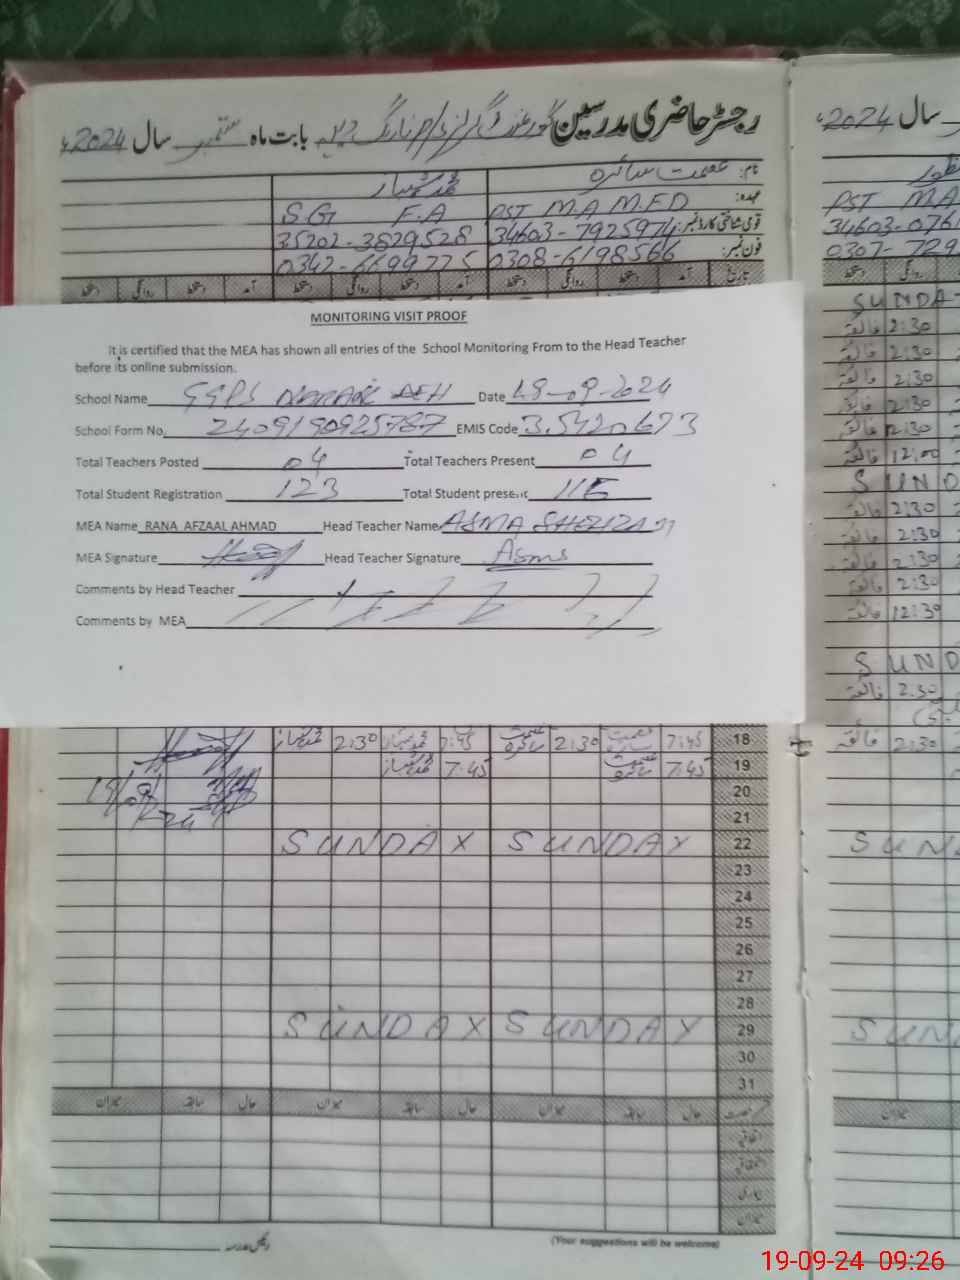 رجسٹر حاضری مدرسین گورنمنٹ گرلز بابت ماہ ستمبر سال 2024ء
سال 2024ء
نام: عصمت سائرہ
عہدہ: PST M.A M.ED S.G F.A
PST M.A
قومی شناختی کارڈ نمبر: 34603-7925974 35202-3829528
34603-076
فون نمبر: 0308-6198566 0342-6699775
0307-729
تاریخ آمد دستخط روانگی دستخط آمد دستخط روانگی دستخط آمد دستخط روانگی دستخط
روانگی دستخط
MONITORING VISIT PROOF
It is certified that the MEA has shown all entries of the School Monitoring From to the Head Teacher
before its online submission.
School Name GGPS NARANG DEH Date 18-09-2024
School Form No. 2409190925787 EMIS Code 35420673
Total Teachers Posted 04 Total Teachers Present 04
Total Student Registration 123 Total Student present 115
MEA Name RANA AFZAAL AHMAD Head Teacher Name ASMA
MEA Signature Head Teacher Signature Asma
Comments by Head Teacher
Comments by MEA
SUNDA
2:30
2:30
2:30
2:30
2:30
12:00
SUND
2:30
2:30
2:30
2:30
12:30
SUND
2:30
2:30
18 7:45 2:30 7:45 2:30
19 7:45 7:45
20 19/09/24
21
22 SUNDAY SUNDAY
SUN
23
24
25
26
27
28
29 SUNDAY SUNDAY
SUN
30
31
حال سابقہ میزان حال سابقہ میزان حال سابقہ میزان
میزان
اتفاقیہ
بیماری
میزان
(Your suggestions will be welcome)
19-09-24 09:26